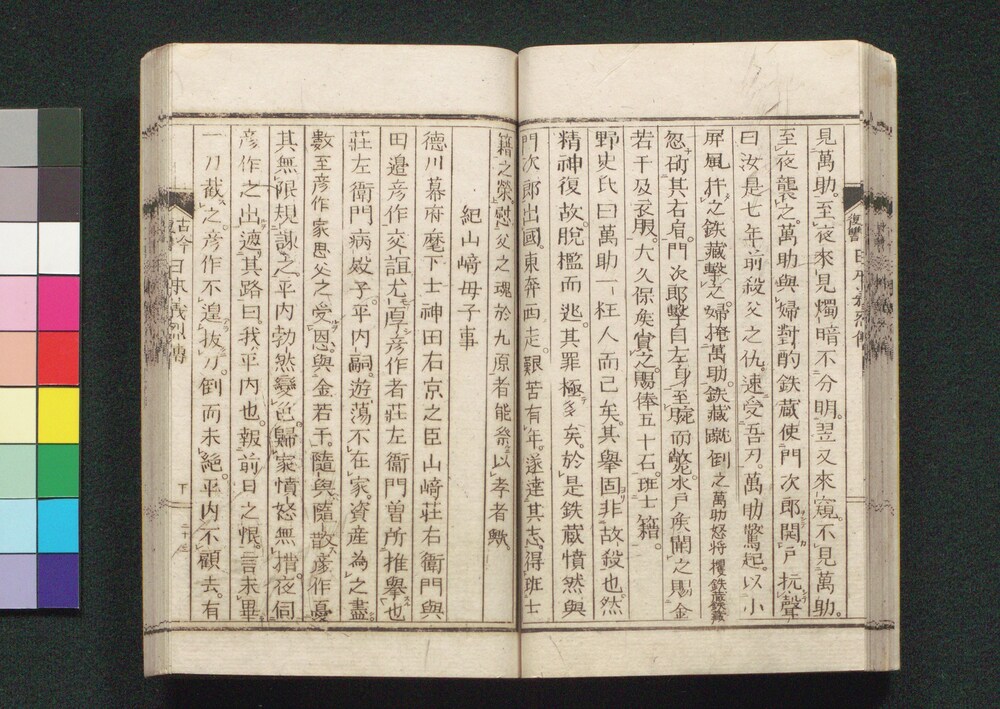 見萬助。至夜來見燭暗不分明。翌又來窺。不見萬助。
至夜襲之。萬助與婦對酌鉄蔵使門次郎関戸抗聲
曰汝是七年前殺父之仇。速受吾刃。萬助驚起。以小
屏風拌之鉄蔵擊之。婦掩萬助。鉄蔵蹴倒之萬助怒将攫鉄蔵鉄蔵
忽斫其右肩。門次郎擊自左身至腕而斃。水戸矦聞之賜金
若干及衣服。大久保矦賞之。賜俸五十石。班士籍。
野史氏曰萬助一狂人而已矣。其擧固非故殺也。然
精神復故脱檻而逃。其罪極多矣。於是鉄蔵憤然與
門次郎出國。東奔西走。艱苦有年。遂達其志。得班士
籍之榮慰父之魂於九原者能祭以孝者歟。
紀山﨑母子事
德川幕府麾下士神田右京之臣山﨑莊右衛門與
田邉彦作交誼尤厚。彦作者莊左衛門曽所推擧也
莊左衛門病歿子。平内嗣。遊蕩不在家。資産為之盡。
數至彦作家思父之受恩。與金若干。隨與隨散彦作憂
其無限規諫之。平内勃然變色。歸家憤怒無措。夜伺
彦作之出遮其路曰我平内也。報前日之恨。言未畢
一刀截之。彦作不遑抜刀。倒而未絶。平内不顧去。有
復讐
古今日本義烈傳
下